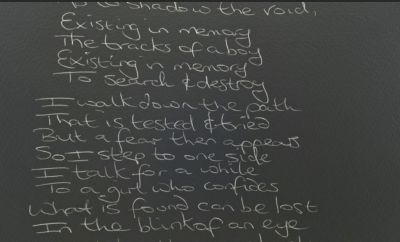 to shadow the void,
Existing in memory
The tracks of a boy
Existing in memory
To search & destroy
I walk down the path
That is tested & tried
But a fear then appears
So I step to one side
I talk for a while
To a girl who confides
What is found can be lost
In the blink of an eye